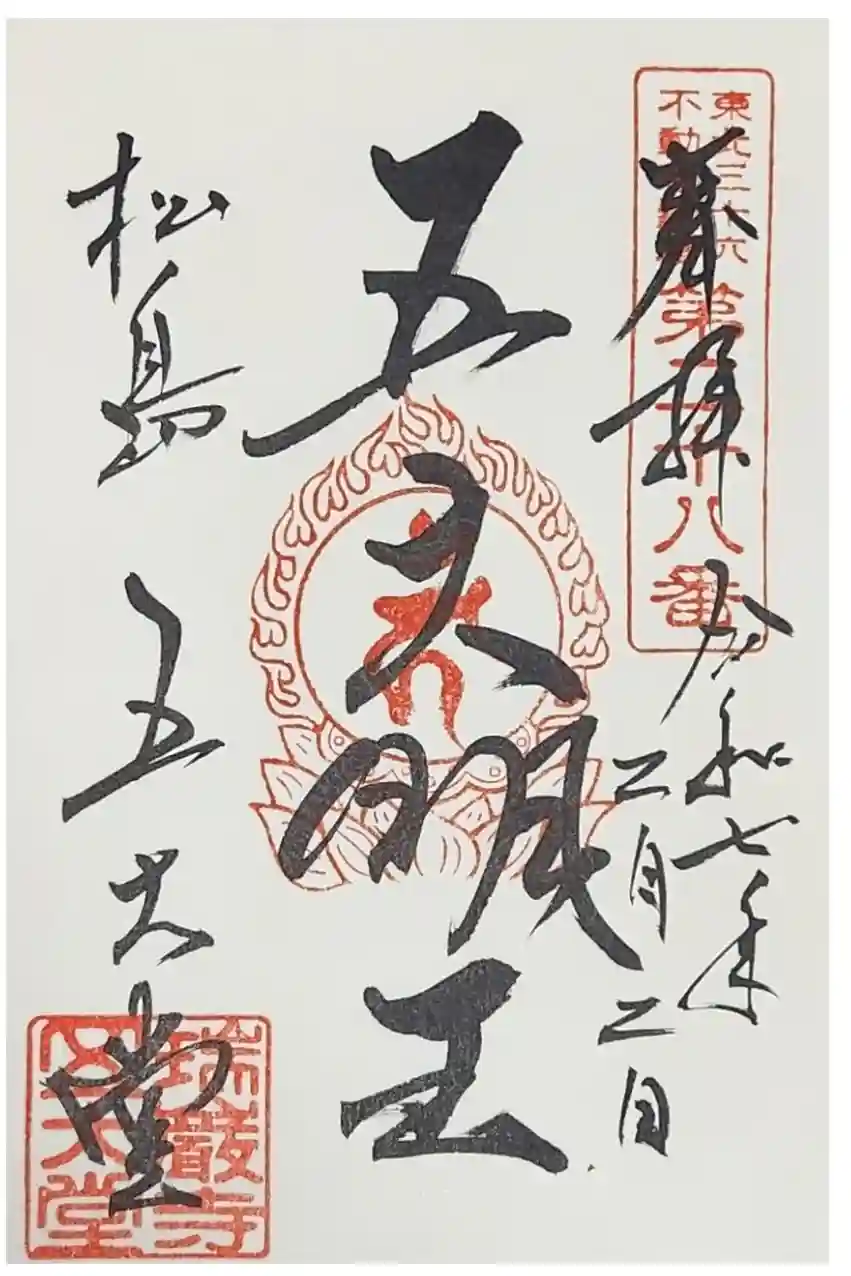 東北三十六
不動尊霊場
第二十八番
奉拝
令和七年
二月二日
五大明王
松島
五大堂
瑞巌寺
五大堂